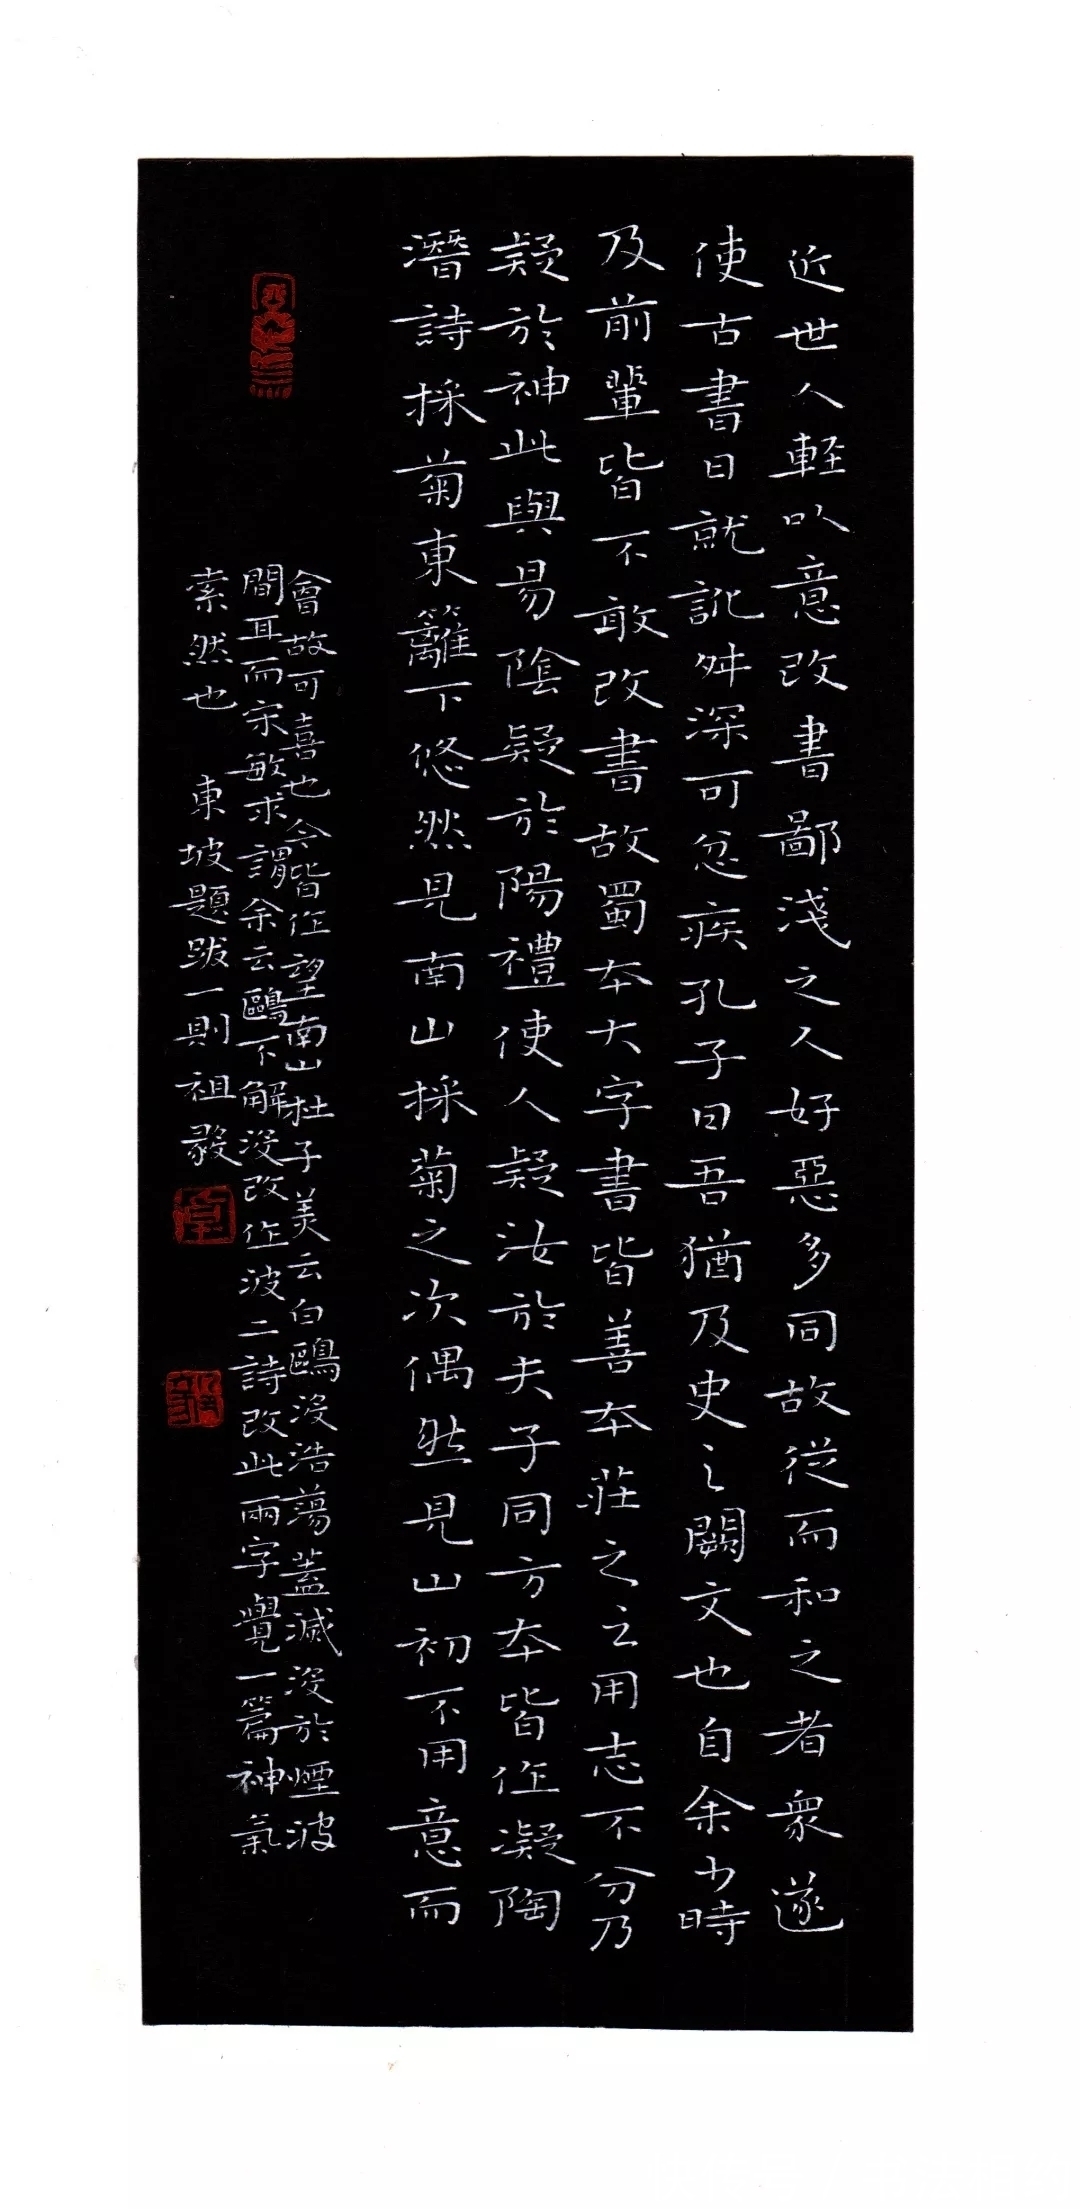 近世人輕以意改書鄙淺之人好惡多同故從而和之者衆遂
使古書日就訛舛深可忿疾孔子曰吾猶及史之闕文也自余少時
及前輩皆不敢改書故蜀本大字書皆善本莊之云用志不分乃
疑於神此與易陰疑於陽禮使人疑汝於夫子同方本皆作凝陶
潛詩採菊東籬下悠然見南山採菊之次偶然見山初不用意而
會故可喜也今皆作望南山杜子美云白鷗沒浩蕩蓋滅沒於煙波
間耳而宋敏求謂余云鷗下解沒改作波二詩改此兩字覺一篇神氣
索然也 東坡題跋一則祖毅